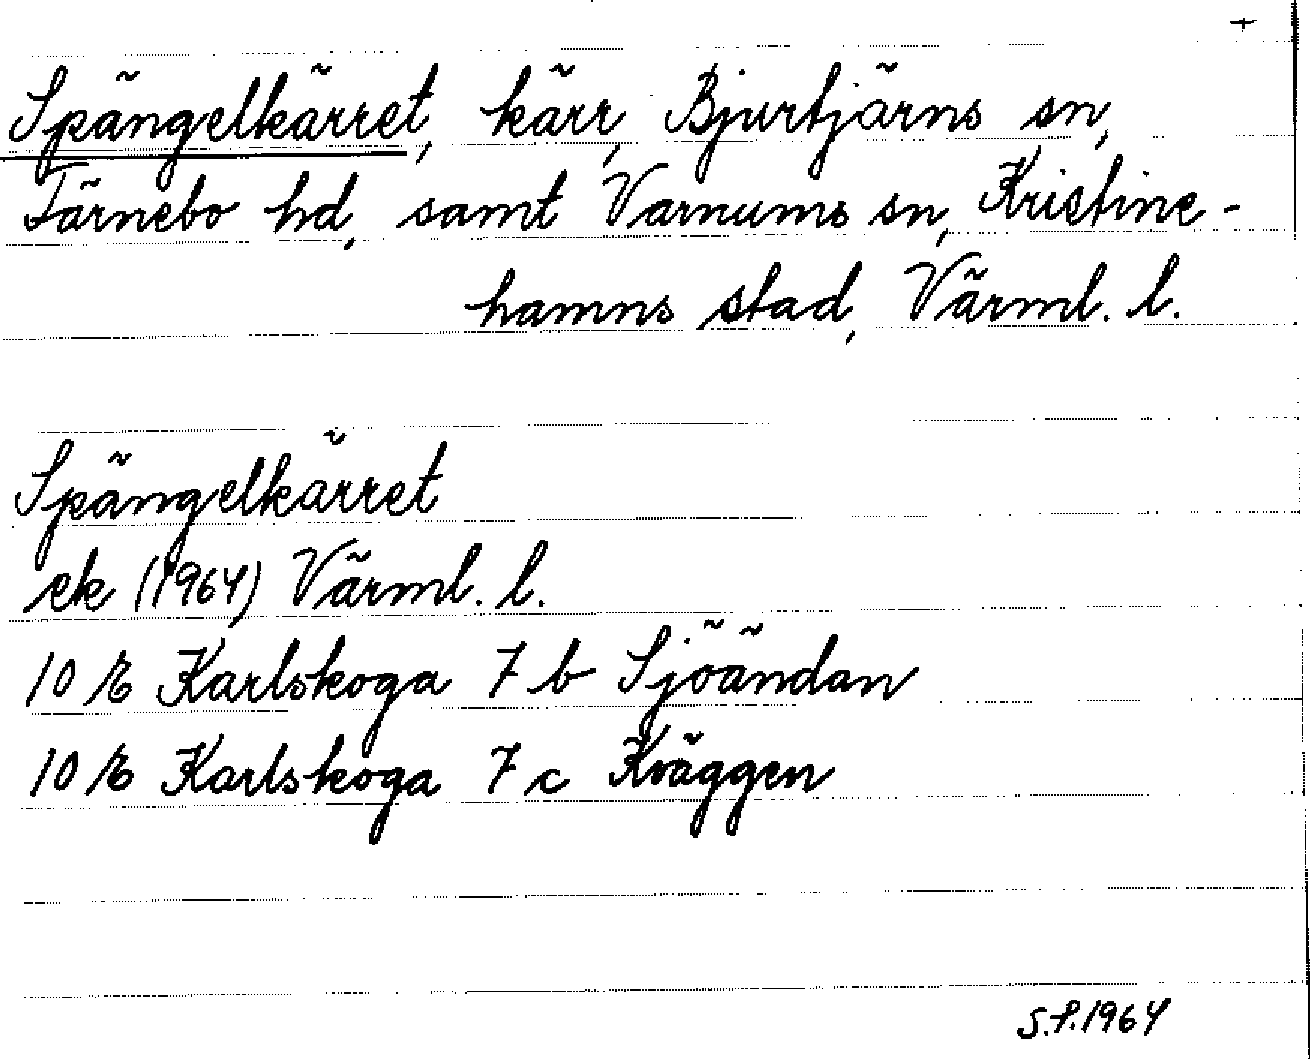 +
Spängelkärret, kärr, Bjurtjärns sn,
Färnebo hd, samt Varnums sn, Kristine-
hamns stad, Värml. l.
Spängelkärret
ek (1964) Värml. l.
10 E Karlskoga 7 b Sjöändan
10 E Karlskoga 7 c Kväggen
S.P. 1964